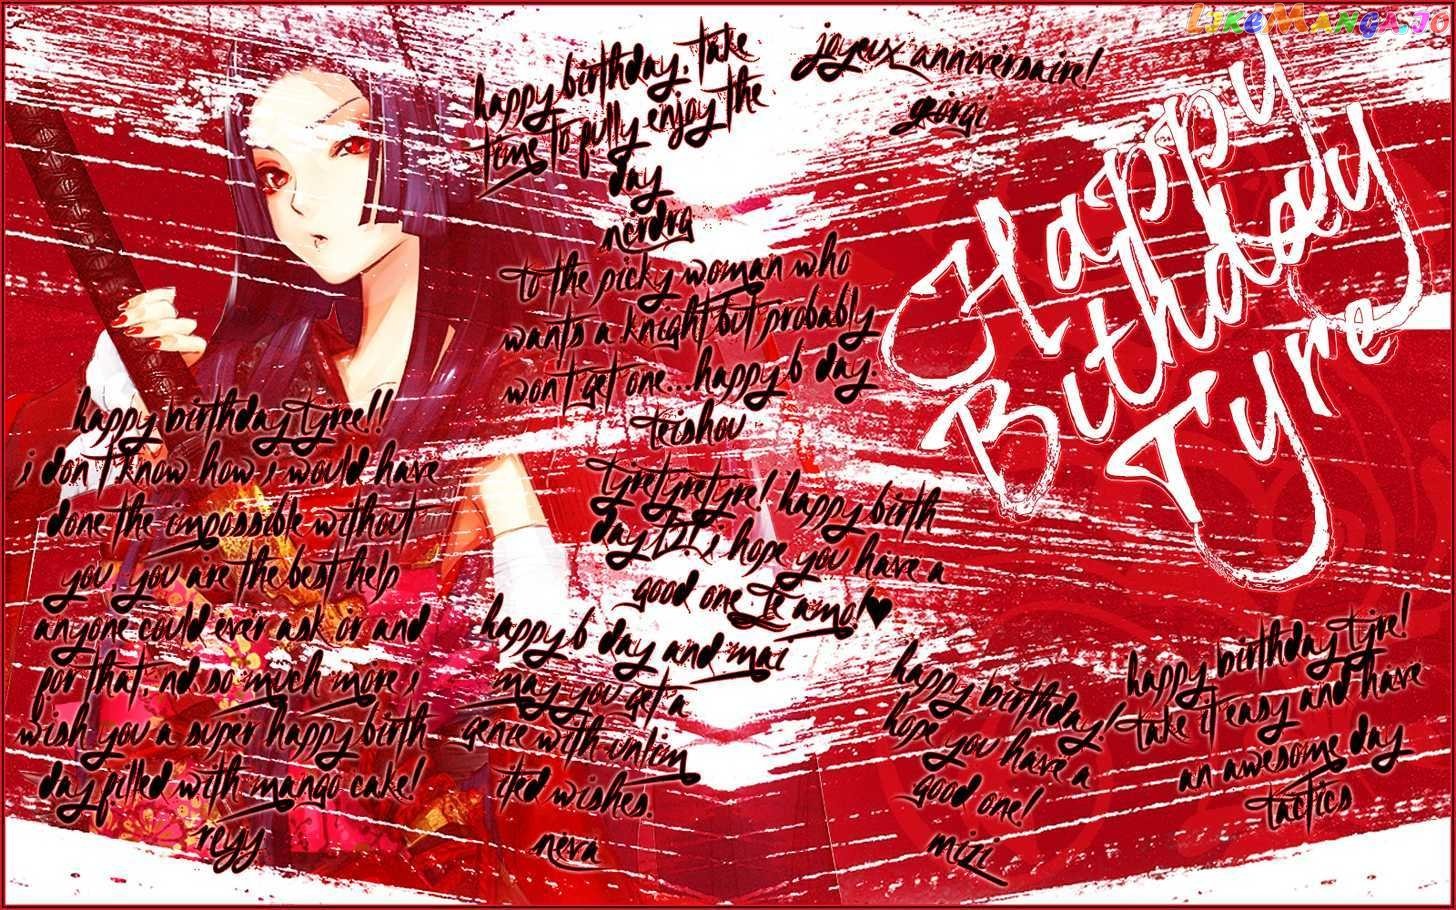 LIKEMANGA.IO
happy birthday. take
time to fully enjoy the
day
nerdra
joyeux anniversaire!
georgi
Happy
Bithday
Tyre
to the picky woman who
wants a knight but probably
won't get one...happy b day.
teishou
happy birthday tyree!!
i don't know how i would have
done the impossible without
you. you are the best help
anyone could ever ask or and
for that, nd so much more i
wish you a super happy birth
day filled with mango cake!
reyy
tyretyretyre! happy birth
day i hope you have a
good one. te amo!♥
happy b day and mai
may you get a
genie with unlim
ited wishes.
neva
happy birthday!
hope you have a
good one!
mizi
happy birthday tyre!
take it easy and have
an awesome day
tactics